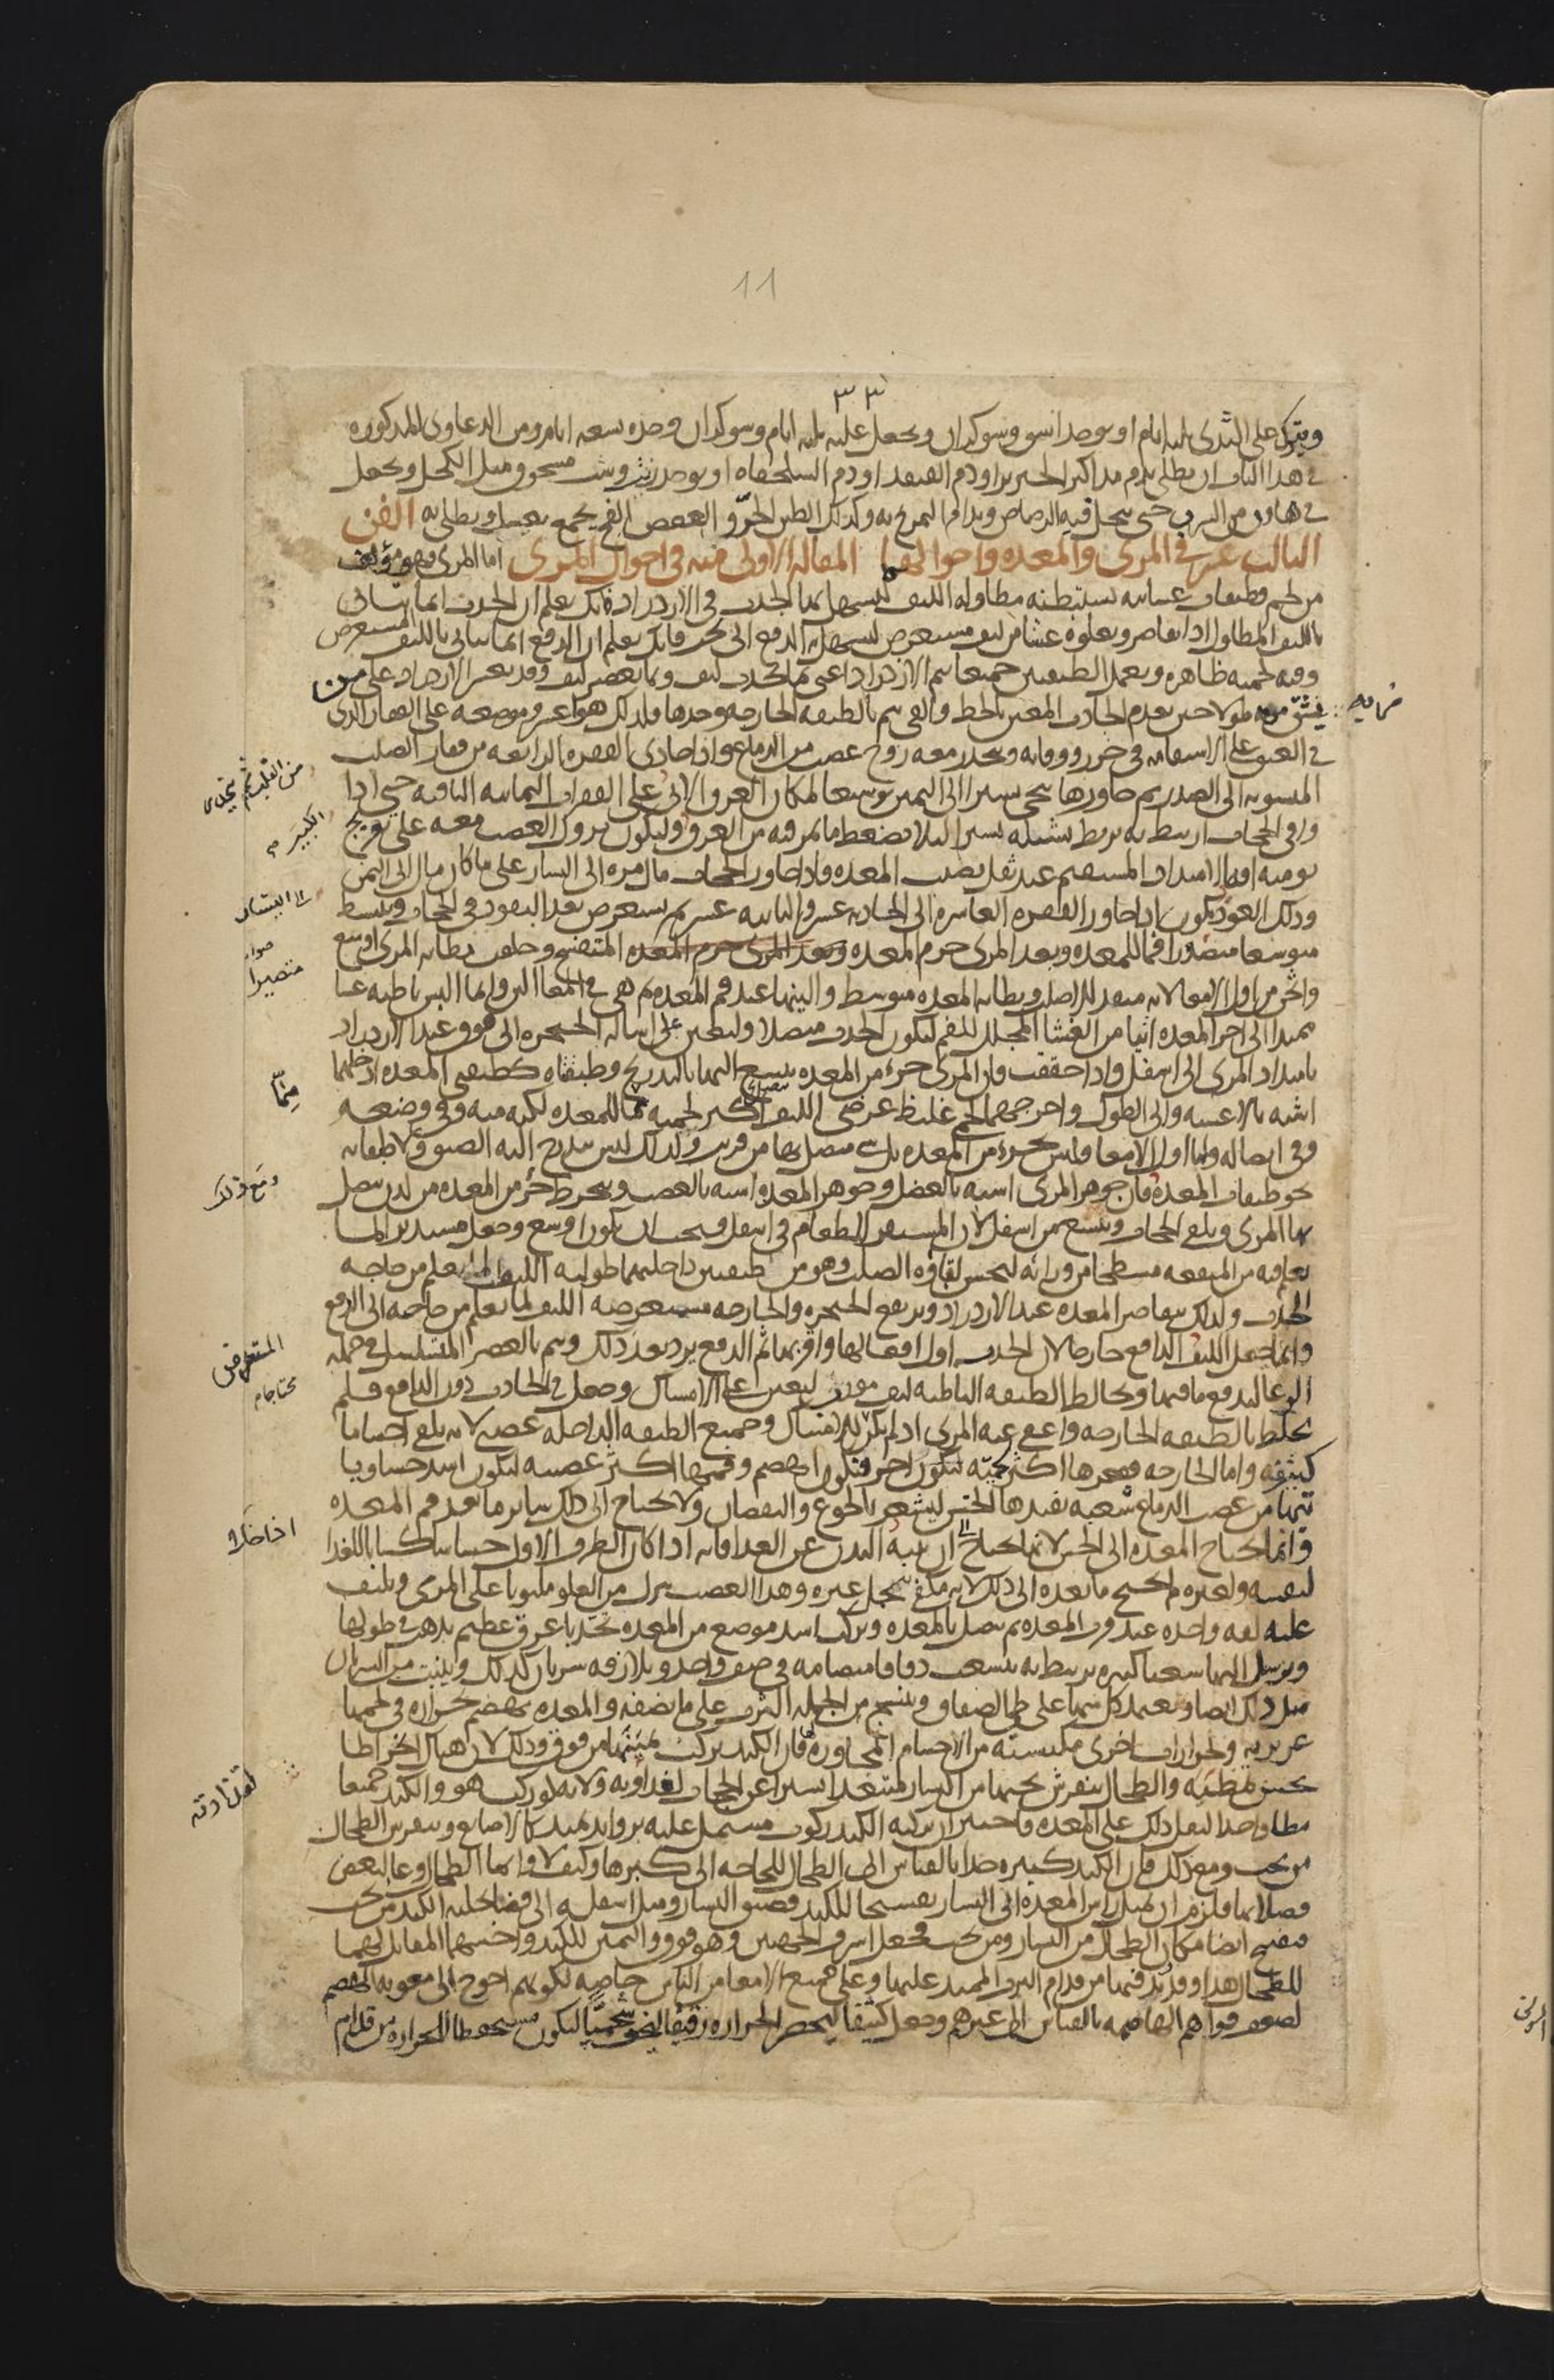 11
٣٣
ويترك على الثدي ثلاثة ايام او يوخذ اسوس وسوكران ويجعل عليه ثلاثة ايام وسوكران وحده تسعة ايام ومن الدعاوى المذكورة
في هذا الباب ان يطلى بدم مذاكير الخنزير او دم القنفذ او دم السلحفاة او يوخذ زيت وشب مسحوق مثل الكحل ويجعل
في هاون من اسرب حتى ينحل فيه الرصاص ويدام التمريخ به وكذلك الطين الحر والعفص الفج يجمع بعسل ويطلى به الفن
الثالث عشر في المرى والمعدة واحوالهما المقالة الاولى منه في احوال المرى اما المرى فهو مؤلف
من لحم وطبقات غشائية تستبطنه مطاولة الليف ليسهل بها الجذب في الازدراد فانك تعلم ان الجذب انما يتاتى
بالليف المطاول اذا تقاصر ويعلوه غشا من ليف مستعرض ليسهل به الدفع الى تحت فانك تعلم ان الدفع انما يتاتى بالليف المستعرض
وفيه لحمية ظاهرة وبعمل الطبقتين جميعا يتم الازدراد اعني بما يجذب ليف وبما يعصر ليف وقد يعسر الازدراد على من
يشق مريه طولا حين يعدم الجاذب المعين بالخط والقي يتم بالطبقة الخارجة وحدها فلذلك هو اعسر وموضعه على الفقار الذي
في العنق على الاستقامة في حرز ووقاية وينحدر معه زوج عصب من الدماغ واذا حاذى الفقرة الرابعة من فقار الصلب
المنسوبة الى الصدر ثم جاوزها تنحى يسيرا الى اليمين توسيعا لمكان العرق الاتي على الفقرات الثمانية الباقية حتى اذا
وافى الحجاب ارتبط به بربط تشيله يسيرا لئلا يضغط ما يمر فيه من العرق وليكون نزول العصب معه على تعريج
يومنه افة الامتداد المستقيم عند ثقل يصيب المعدة واذا جاوز الحجاب مال مرة الى اليسار على ما كان مال الى اليمين
وذلك العود يكون اذا جاوز الفقرة العاشرة الى الحادية عشر والثانية عشر ثم يستعرض بعد النفوذ في الحجاب وينبسط
متوسعا متصورا فما للمعدة وبعد المرى جرم المعدة وبعد المرى جرم المعدة المتفتح وخلقت بطانة المرى اوسع
واثخن من اول الامعا لانه منفذ للاصلب وبطانة المعدة متوسطة والينها عند فم المعدة ثم هي في المعا الين وانما البس باطنه غشا
ممتدا الى اخر المعدة اتيا من الغشا المجلل للفم ليكون الجذب متصلا وليعين على اشالة الحنجرة الى فوق عند الازدراد
بامتداد المرى الى اسفل واذا حققت فان المرى جزء من المعدة يتسع اليها بالتدريج وطبقتاه كطبقتي المعدة ادخلهما
اشبه بالاغشية والى الطول واخرجهما لحمي غليظ عرضي الليف اكثر لحمية مما للمعدة لكنه منه وفي وضعه
وفي اتصاله واما اول الامعا فليس بجزء من المعدة بل شي متصل بها من قريب ولذلك ليس يتدرج اليه الضيق ولا طبقاته
نحو طبقات المعدة فان جوهر المرى اشبه بالعضل وجوهر المعدة اشبه بالعصب وينخرط جزء من المعدة من لدن يتصل
بها المرى ويلقى الحجاب ويتسع من اسفل لان المستقر للطعام في اسفل فيجب ان يكون اوسع وجعل مستديرا لما
تعلم فيه من المنفعة مسطحا من ورائه ليحسن لقاؤه الصلب وهو من طبقتين داخلتهما طولية الليف لما تعلم من حاجة
الجذب ولذلك تتقاصر المعدة عند الازدراد وترتفع الحنجرة والخارجة مستعرضة الليف لما تعلم من حاجة الى الدفع
وانما جعل الليف الدافع خارجا لان الجذب اول افعالها واقربها ثم الدفع يرد بعد ذلك ويتم بالعصر المتسلسل في جملة
الوعا ليدفع ما فيها ويخالط الطبقة الباطنة ليف مورب ليعين على الامساك وجعل في الجاذب دون الدافع فلم
يخلط بالطبقة الخارجة واعفي عنه المرى اذ لم يكن للامساك وجميع الطبقة الداخلة عصبي لانه يلقى اجساما
كثيفة واما الخارجة فقعرها اكثر لحمية ليكون احر فيكون اهضم وفمها اكثر عصبية ليكون اشد حسا وياتيها
تيها من عصب الدماغ شعبة تفيدها الحس ليشعر بالجوع والنقصان ولا يحتاج الى ذلك سائر ما بعد فم المعدة
وانما تحتاج المعدة الى الحس لانها تحتاج الى ان تنبه البدن عن الغذا فانه اذا كان الطرف الاول حساسا كسابا للغذا
لنفسه ولغيره لم يحتج ما بعده الى ذلك لانه مكفي بتحمل غيره وهذا العصب ينزل من العلو ملتويا على المرى ويلتف
عليه لفة واحدة عند قرب المعدة ثم يتصل بالمعدة ويركب اشد موضع من المعدة تحدبا عرق عظيم يذهب في طولها
ويرسل اليها شعبا كثيرة ترتبط به تتشعب دقاقا متضامة في صف واحد ويلازقه شريان كذلك وينبت من الشريان
مثل ذلك ايضا ويعتمد كل منهما على طي الصفاق وينتسج من الجملة الثرب على ما نصفه والمعدة تهضم بحرارة في لحمها
غريزية وبحرارات اخرى مكتسبة من الاجسام المجاورة فان الكبد يركب يمينها من فوق وذلك لان هناك انخراطا
يحسن تمطيه والطحال منفرش تحتها من اليسار متباعدا يسيرا عن الحجاب لقذارته ولانه لو ركب هو والكبد جميعا
مطا واحدا لثقل ذلك على المعدة فاختير ان يركبه الكبد ركوب مشتمل عليه بزوائد تمتد كالاصابع وينفرش الطحال
من تحت ومع ذلك فان الكبد كبيرة جدا بالقياس الى الطحال للحاجة الى كبرها وكيف لا وانما الطحال وعا لبعض
فضلاتها فلزم ان يميل راس المعدة الى اليسار تفسيحا للكبد فضيق اليسار وميل اسفله الى فضا يخليه الكبد من تحت
فيفسح ايضا مكان الطحال من اليسار ومن تحت فجعل اشرف الجهتين وهو فوق واليمين للكبد واخسهما المقابل لهما
للطحال هذا وقد يدفيها من قدام الثرب الممتد عليها وعلى جميع الامعا من الناس خاصة لكونهم احوج الى معونة الهضم
لضعف قواهم الهاضمة بالقياس الى غيرهم وجعل كثيفا ليحصر الحرارة رقيقا ليخف شحميا ليكون مستحفظا للحرارة من قدام
متصيرا
ومع ذلك
المستعرض
لقذارته